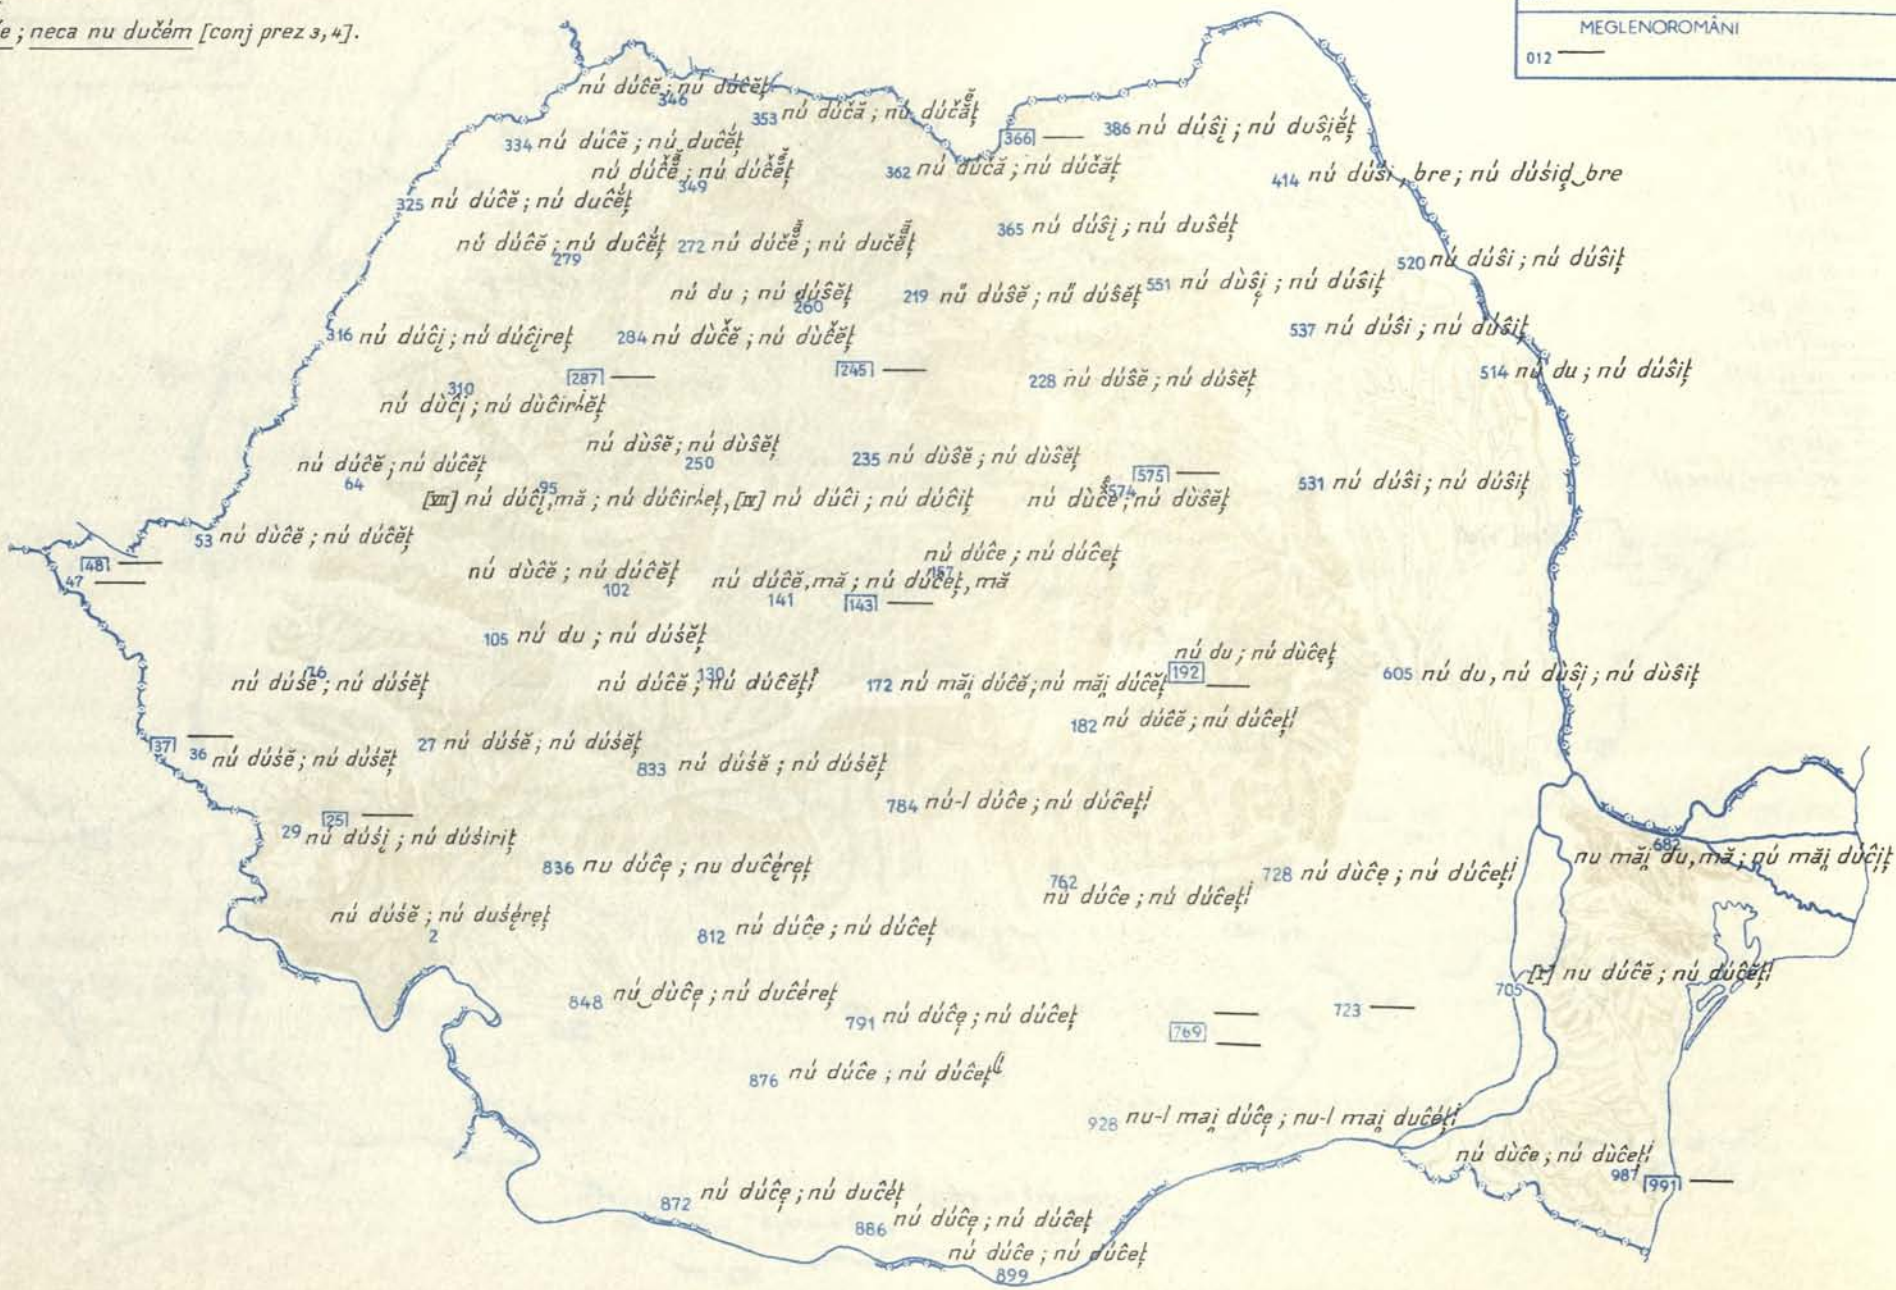 ; neca nu dučém [conj prez 3, 4].
MEGLENOROMÂNI
012 —
nú dúĉĕ ; nú dúĉĕț
346
353 nú dúčă ; nú dúčắț
366 —
386 nú dúŝi̯ ; nú duŝi̯ĕ́ț
334 nú dúĉĕ ; nú‿duĉĕ́ț
nú dúčĕ ; nú dúčĕț
349
362 nú dúčă ; nú dúčăț
414 nú dúśi, bre ; nú dúśid̦‿bre
325 nú dúĉĕ ; nú duĉĕ́ț
365 nú dúŝi̯ ; nú duŝéț
nú dúĉĕ ; nú duĉĕ́ț
279
272 nú dúčĕ ; nú dučĕț
520 nú dúŝi ; nú dúŝiț
nú du ; nú dúŝĕț
260
219 nű dúŝĕ ; nű dúŝĕț
551 nú dùŝi̯ ; nú dúŝiț
316 nú dúĉi̯ ; nú dúĉi̯reț
284 nú dùčĕ ; nú dùčĕț
537 nú dúŝi ; nú dúŝiț
287 —
245 —
228 nú dúŝĕ ; nú dúŝĕț
514 nú du ; nú dúŝiț
310
nú dùĉi̯ ; nú dùĉirʰĕț
nú dùŝĕ ; nú dùŝĕț
250
235 nú dùŝĕ ; nú dùŝĕț
575 —
nú dúĉĕ ; nú dúĉĕț
64
95
[VII] nú dúĉi̯, mă ; nú dúĉirʰeț, [IV] nú dúĉi ; nú dúĉiț
574
nú dùĉe ; nú dùŝĕț
531 nú dúŝi ; nú dúŝiț
53 nú dùĉĕ ; nú dúĉĕț
48 —
47 —
nú dúĉe ; nú dúĉeț
157
nú dùĉĕ ; nú dúĉĕț
102
nú dúĉĕ, mă ; nú dúĉeț, mă
141
143 —
105 nú du ; nú dúśĕț
nú du ; nú dùĉęț
192 —
76
nú dúśĕ ; nú dúśĕț
130
nú dúĉĕ ; nú dúĉĕțⁱ
172 nú măi̯ dúĉĕ ; nú măi̯ dúĉĕț
605 nú du, nú dùŝi̯ ; nú dùŝiț
182 nú dúĉĕ ; nú dúĉețⁱ
37 —
36 nú dúśĕ ; nú dúśĕț
27 nú dúśĕ ; nú dúśĕț
833 nú dúśĕ ; nú dúśĕț
784 nú-l dúĉe ; nú dúĉețⁱ
25 —
29 nú dúśi̯ ; nú dúśiriț
836 nu dúĉę ; nu duĉéręț
762
nú dúĉe ; nú dúĉețⁱ
728 nú dùĉę ; nú dúĉețⁱ
682
nu măi̯ du, mă ; nú măi̯ dúĉiț
nú dúśĕ ; nú duśéręț
2
812 nú dúĉe ; nú dúĉeț
[I] nu dúĉĕ ; nú dúĉĕțⁱ
705
848 nú‿dùĉę ; nú duĉéreț
791 nú dúĉę ; nú dúĉeț
769 —
723 —
876 nú dúĉe ; nú dúĉețⁱ
928 nu-l mai̯ dúĉę ; nu-l mai̯ duĉéțⁱ
nú dùĉe ; nú dùĉețⁱ
987
991 —
872 nú dúĉę ; nú duĉéț
886 nú dúĉę ; nú dúĉeț
nú dúĉe ; nú dúĉeț
899